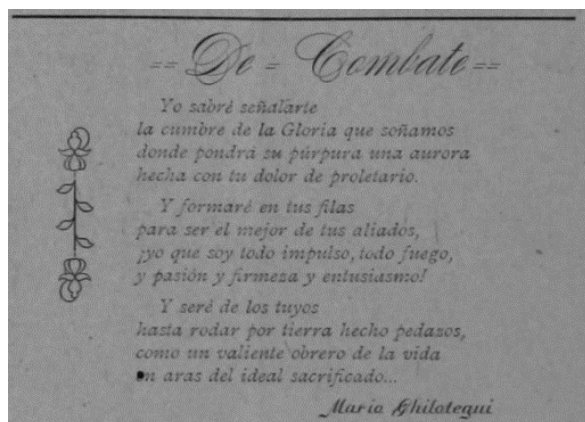 == De = Combate ==
Yo sabré señalarte
la cumbre de la Gloria que soñamos
donde pondrá su púrpura una aurora
hecha con tu dolor de proletario.
Y formaré en tus filas
para ser el mejor de tus aliados,
¡yo que soy todo impulso, todo fuego,
y pasión y firmeza y entusiasmo!
Y seré de los tuyos
hasta rodar por tierra hecho pedazos,
como un valiente obrero de la vida
en aras del ideal sacrificado...
Maria Ghilotegui